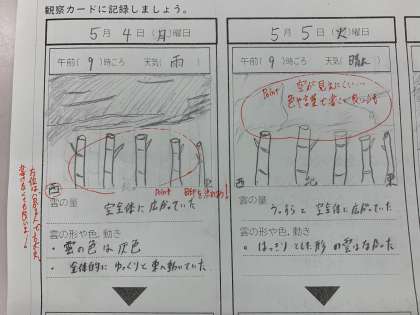 観察カードに記録しましょう。
5月4日(月)曜日
午前(9)時ごろ 天気(雨)
Point
西
雲の量
空全体に広がっていた
雲の形や色、動き
・雲の色は灰色
・全体的にゆっくりと東へ動いていた
5月5日(火)曜日
午前(9)時ごろ 天気(晴れ)
Point 空が見えにくい…
西 北 東
雲の量
うっすらと空全体に広がっていた
雲の形や色、動き
・はっきりとした形の雲はなかった